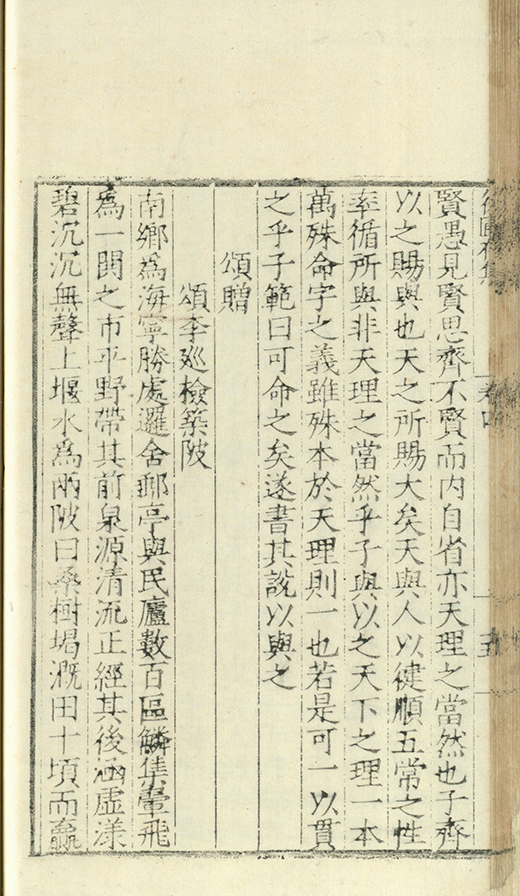 集 卷四 五
賢愚見賢思齊不賢而内自省亦天理之當然也子齊
以之賜與也天之所賜大矣天與人以健順五常之性
率循所與非天理之當然乎子與以之天下之理一本
萬殊命字之義雖殊本於天理則一也若是可一以貫
之乎子範曰可命之矣遂書其說以與之
頌贈
頌李廵檢築陂
南鄉爲海寧勝處邏舍郵亭與民廬數百區鱗集翬飛
爲一閧之市平野帶其前泉源清流正經其後涵虛漾
碧沉沉無聲上堰水爲兩陂曰桑樹堨溉田十頃而羸